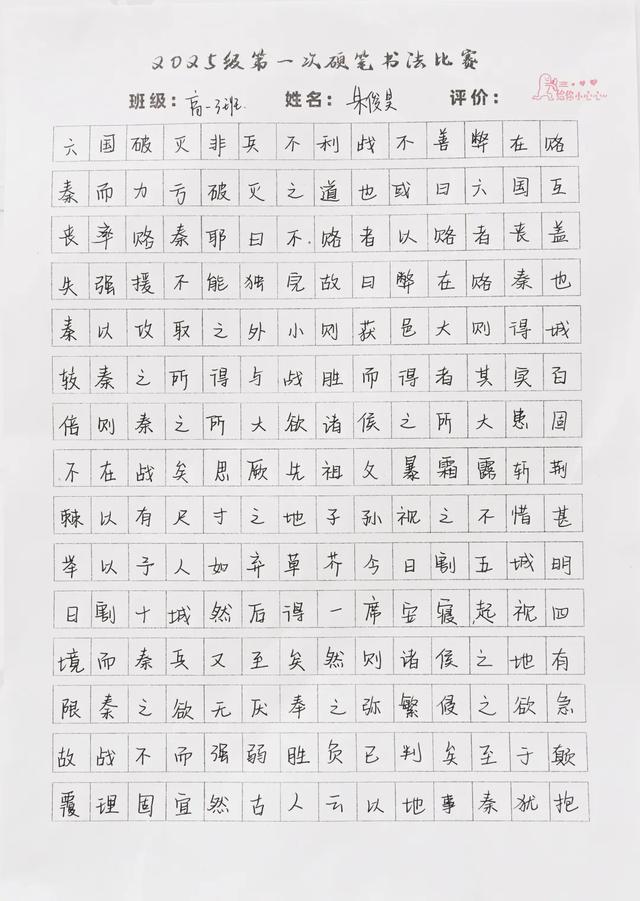 2025级第一次硬笔书法比赛
班级：高一3班 姓名：朱俊昊 评价：
给你小心心~
六国破灭非兵不利战不善弊在赂
秦而力亏破灭之道也或曰六国互
丧率赂秦耶曰不赂者以赂者丧盖
失强援不能独完故曰弊在赂秦也
秦以攻取之外小则获邑大则得城
较秦之所得与战胜而得者其实百
倍则秦之所大欲诸侯之所大患固
不在战矣思厥先祖父暴霜露斩荆
棘以有尺寸之地子孙视之不惜甚
举以予人如弃草芥今日割五城明
日割十城然后得一席安寝起视四
境而秦兵又至矣然则诸侯之地有
限秦之欲无厌奉之弥繁侵之欲急
故战不而强弱胜负已判矣至于颠
覆理固宜然古人云以地事秦犹抱